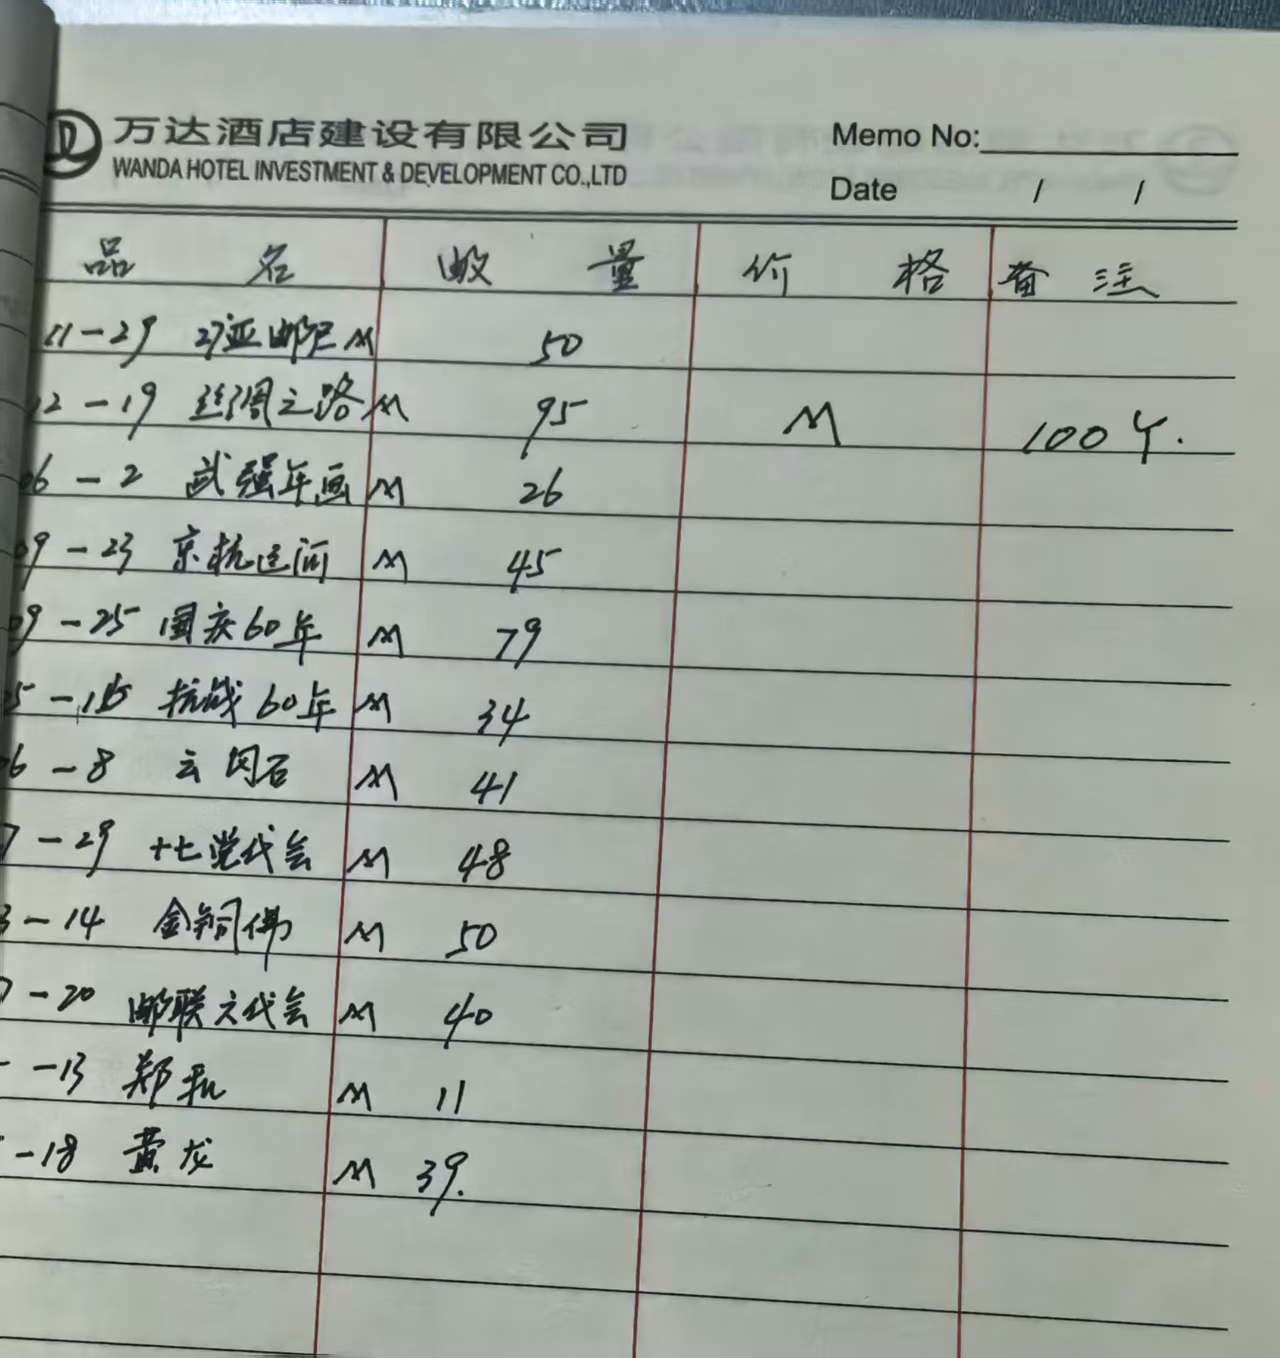 万达酒店建设有限公司
WANDA HOTEL INVESTMENT & DEVELOPMENT CO.,LTD
Memo No:
Date / /
品名 收量 价格 备注
11-29 27亚邮展M 50
12-19 丝绸之路M 95 M 100个.
06-2 武强年画M 26
09-23 京杭运河 M 45
09-25 国庆60年 M 79
5-16 抗战60年 M 34
06-8 云冈石 M 41
7-29 十七党代会 M 48
3-14 金铜佛 M 50
7-20 邮联六代会 M 40
-13 郑和 M 11
-18 黄龙 M 39.